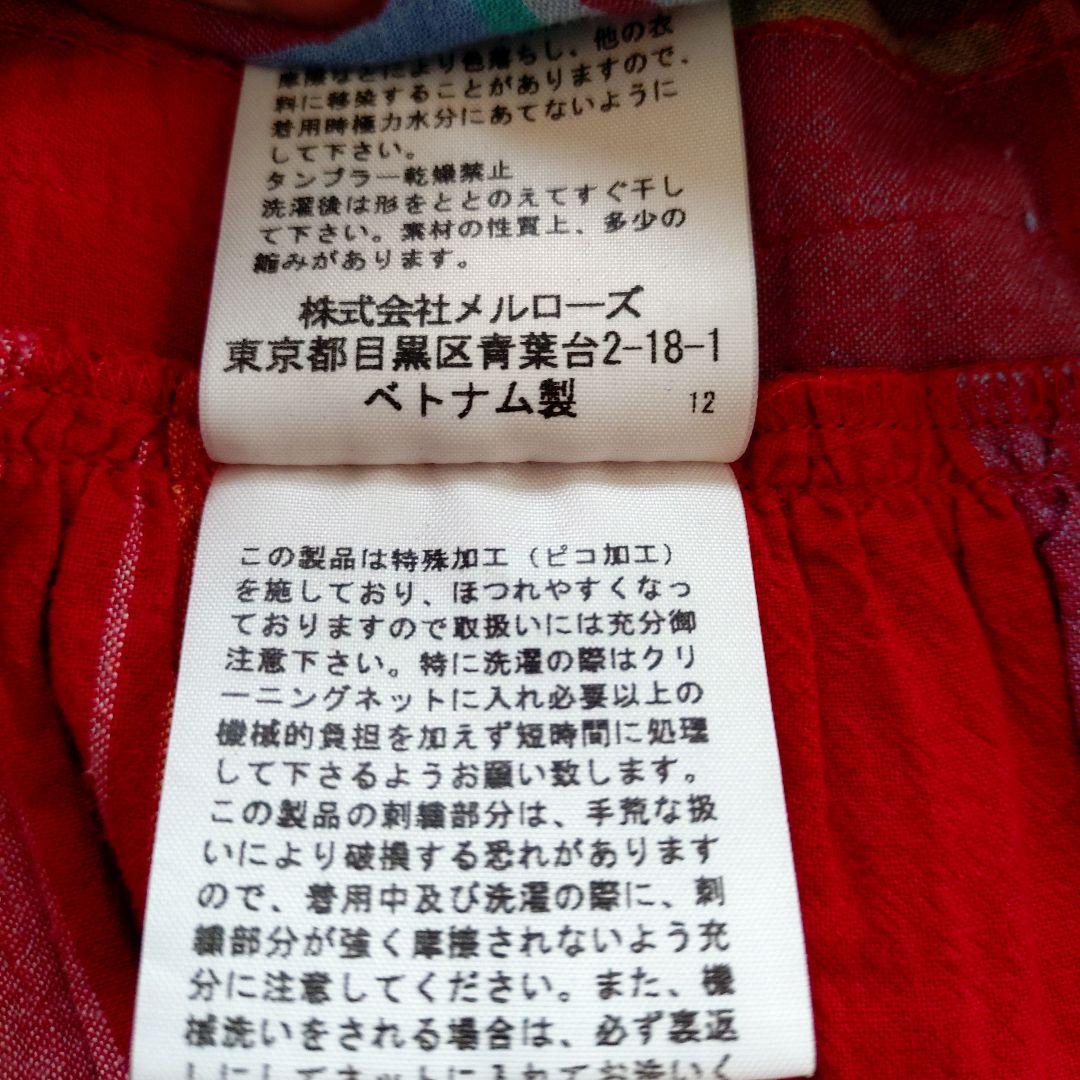 摩擦などにより色落ちし、他の衣
料に移染することがありますので、
着用時極力水分にあてないように
して下さい。
タンブラー乾燥禁止
洗濯後は形をととのえてすぐ干し
て下さい。素材の性質上、多少の
縮みがあります。
株式会社メルローズ
東京都目黒区青葉台2-18-1
ベトナム製 12
この製品は特殊加工（ピコ加工）
を施しており、ほつれやすくなっ
ておりますので取扱いには充分御
注意下さい。特に洗濯の際はクリ
ーニングネットに入れ必要以上の
機械的負担を加えず短時間に処理
して下さるようお願い致します。
この製品の刺繍部分は、手荒な扱
いにより破損する恐れがあります
ので、着用中及び洗濯の際に、刺
繍部分が強く摩擦されないよう充
分に注意してください。また、機
械洗いをされる場合は、必ず裏返
しにしてネットに入れてお洗いく